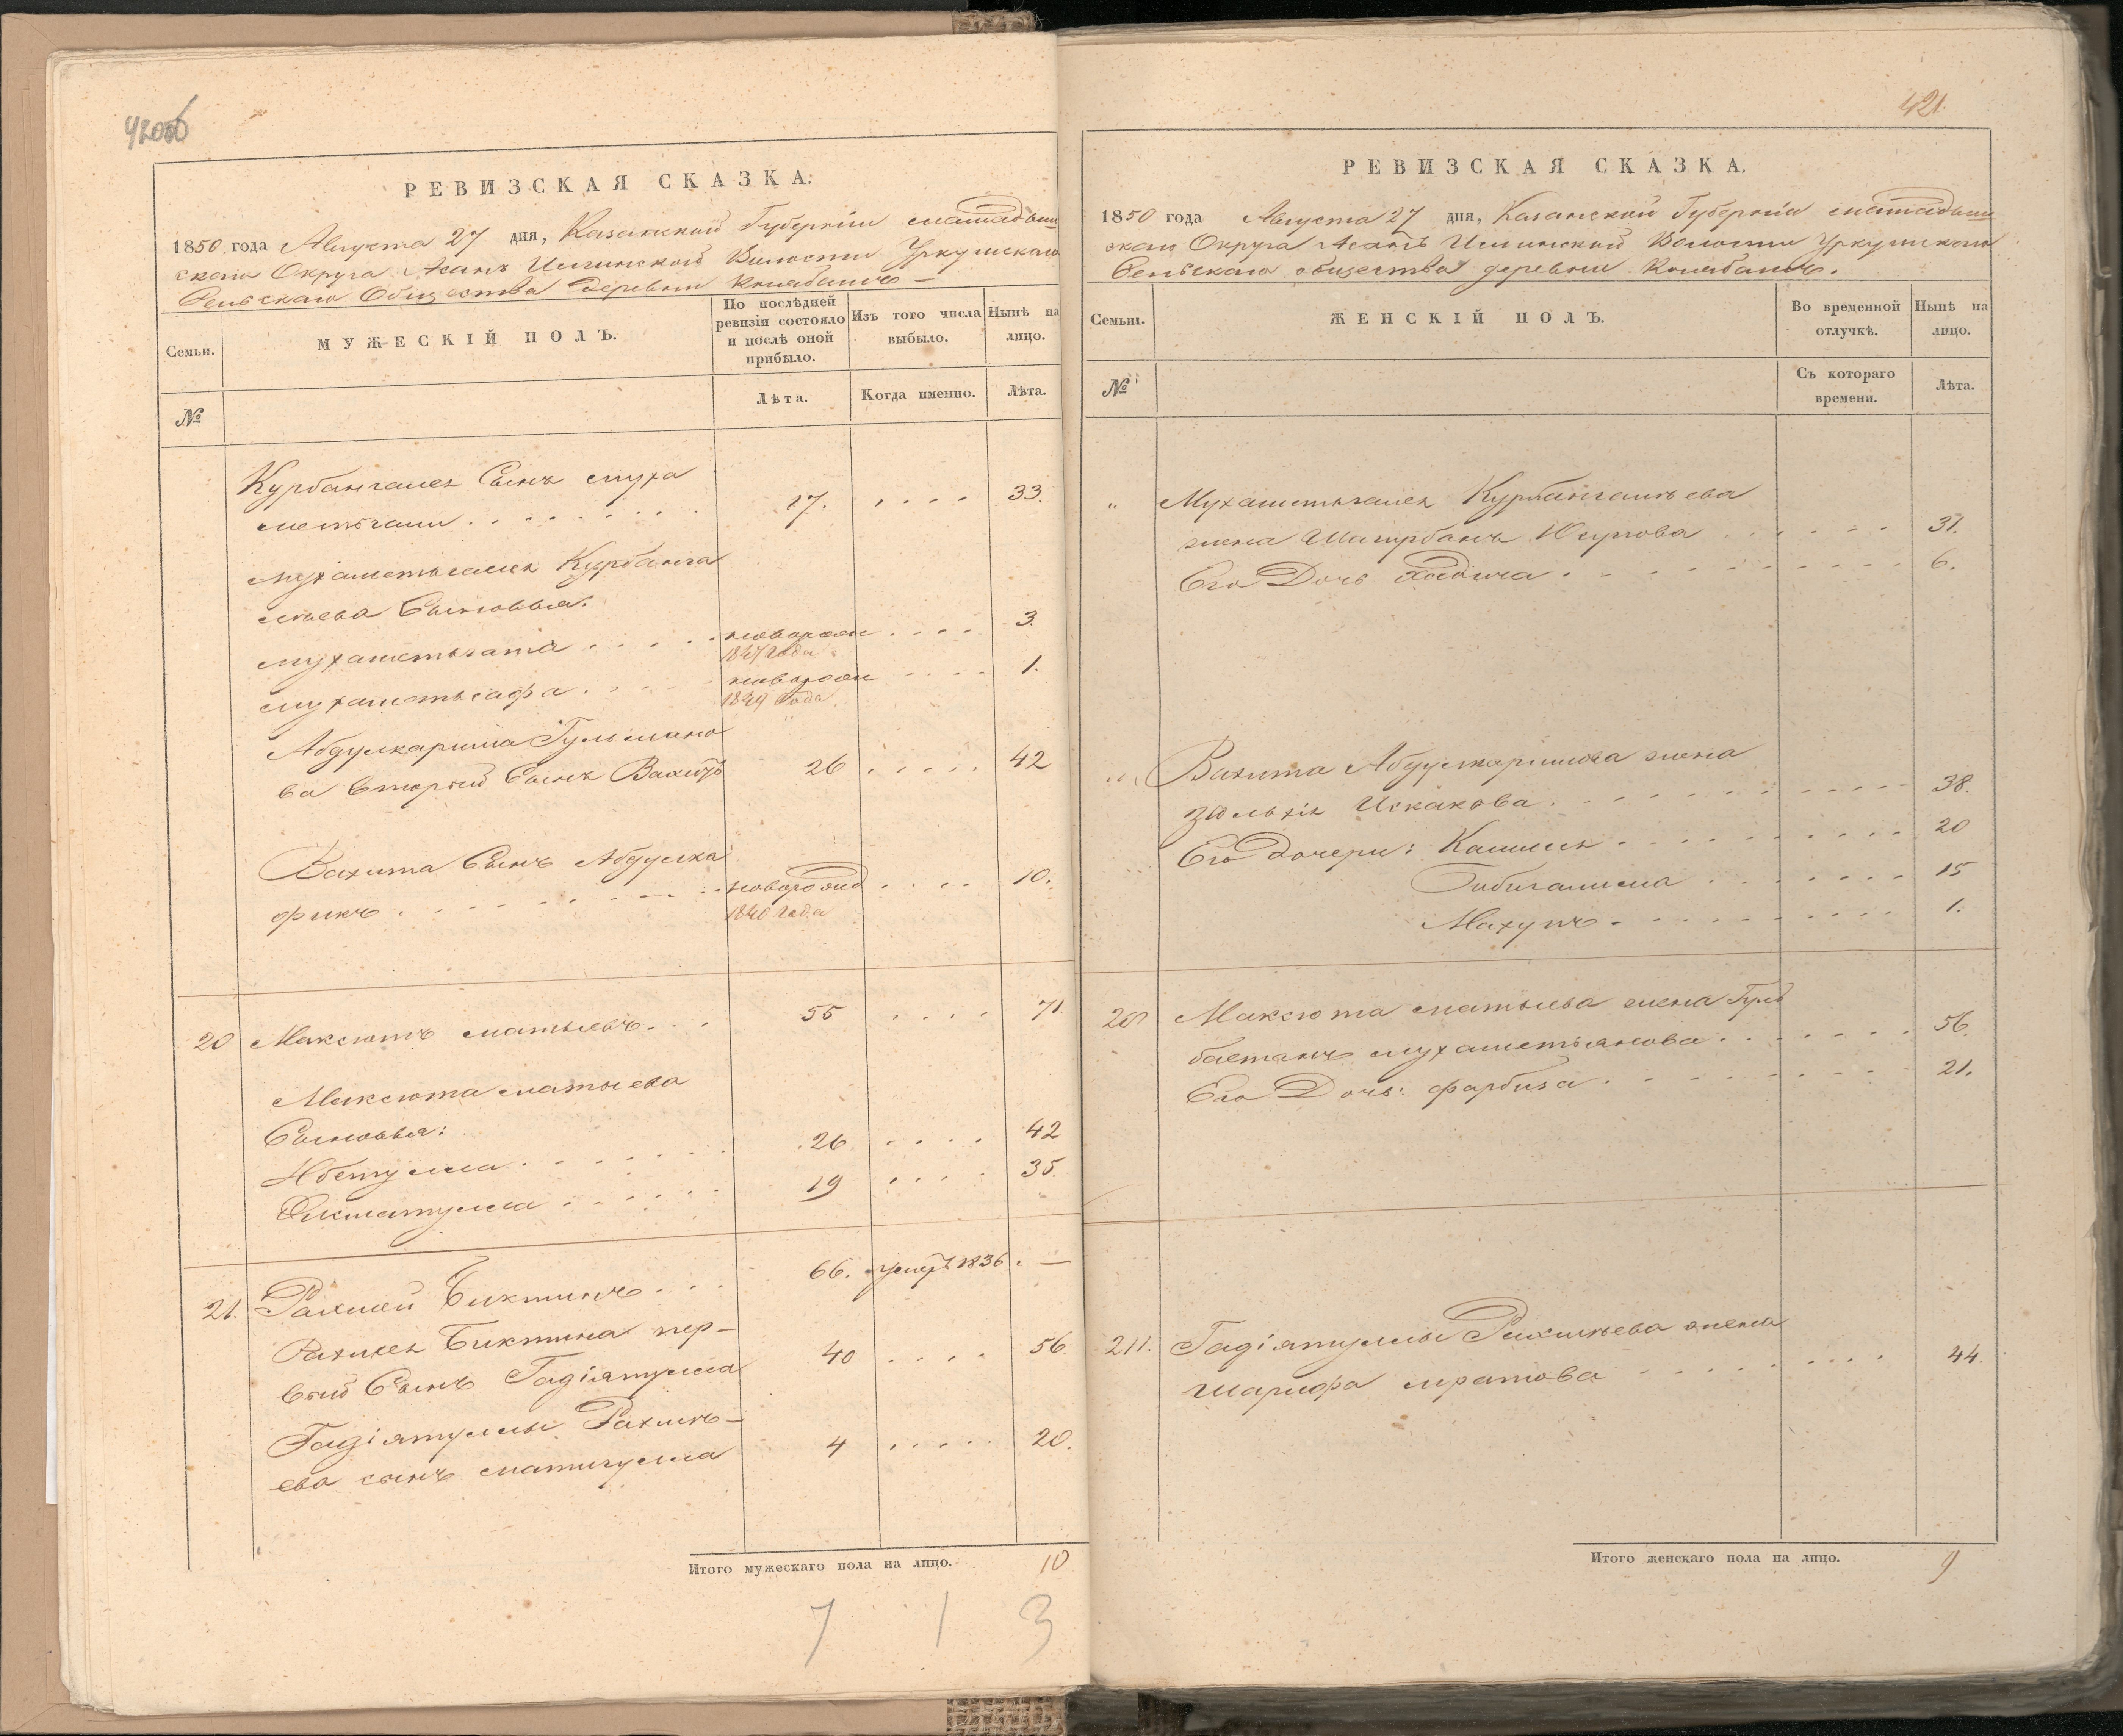 420об
РЕВИЗСКАЯ СКАЗКА.
1850 года Августа 27 дня, Казанской Губерніи мамадыш
скаго Округа Асанъ Волости Уркушскаго
Сельскаго Общества деревни
Семьи.
МУЖЕСКІЙ ПОЛЪ.
По послѣдней ревизіи состояло и послѣ оной прибыло.
Изъ того числа выбыло.
Нынѣ на лицо.
№
Лѣта.
Когда именно.
Лѣта.
Курбангалея Сынъ муха
метьгали 17. 33.
мухаметьгалея Курбанга
леева Сыновья:
мухаметьгата новорож 3.
1847 года
мухаметьсафа новорож 1.
1849 года
Абдулкарима Гульмано
ва второй Сынъ Вахитъ 26 42
Вахита Сынъ Абдулка
фикъ новорожд 10.
1840 года
20 Максютъ матыевъ 55 71.
Максюта матыева
Сыновья:
26 42
Хикматулла 19 35.
21. Рахмей Биктинъ 66. умеръ 1836 —
Рахмея Биктина пер-
вый Сынъ Гадіятулла 40 56.
Гадіятуллы Рахмѣ-
ева сынъ матигулла 4 20.
Итого мужескаго пола на лицо. 10
7 1 3
421.
РЕВИЗСКАЯ СКАЗКА.
1850 года Августа 27 дня, Казанской Губерніи мамадыш
скаго Округа Асанъ Волости Уркушскаго
Сельскаго общества деревни
Семьи.
ЖЕНСКІЙ ПОЛЪ.
Во временной отлучкѣ.
Нынѣ на лицо.
№
Съ котораго времени.
Лѣта.
" Мухаметьгалея Курбангалѣева
жена Шагурбанъ Юсупова 31.
Его Дочь Ходича 6.
" Вахита Абдулкаримова жена
Зюльхія Искакова 38.
Его дочери: Камиля 20
Бибигалима 15
Махупъ 1.
20 Максюта матыева жена Гуль
бастанъ мухаметьянова 56.
Его Дочь: фарбиза 21.
21. Гадіятуллы Рахмѣева жена
шарифа мратова 44.
Итого женскаго пола на лицо. 9